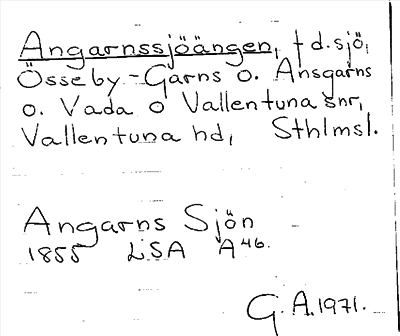 Angarnssjöängen, † d. sjö,
Össeby-Garns o. Ansgarns
o. Vada o Vallentuna snr,
Vallentuna hd, Sthlmsl.
Angarns Sjön
1855 LSA A46.
G. A. 1971.